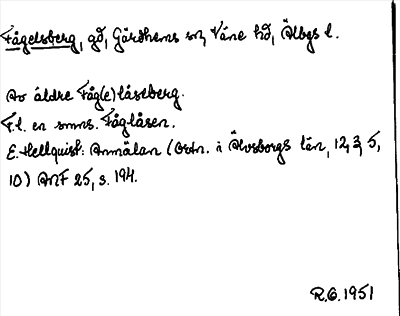 Fågelsberg, gd, Gärdhems sn, Väne hd, Älvbgs l.
Av äldre Fåg(e)låseberg.
F.l. en smns. Fåglåsen.
E. Hellquist: Anmälan (Ortn. i Älvsborgs län, 12, 3, 5,
10) ANF 25, s. 194.
R.G. 1951